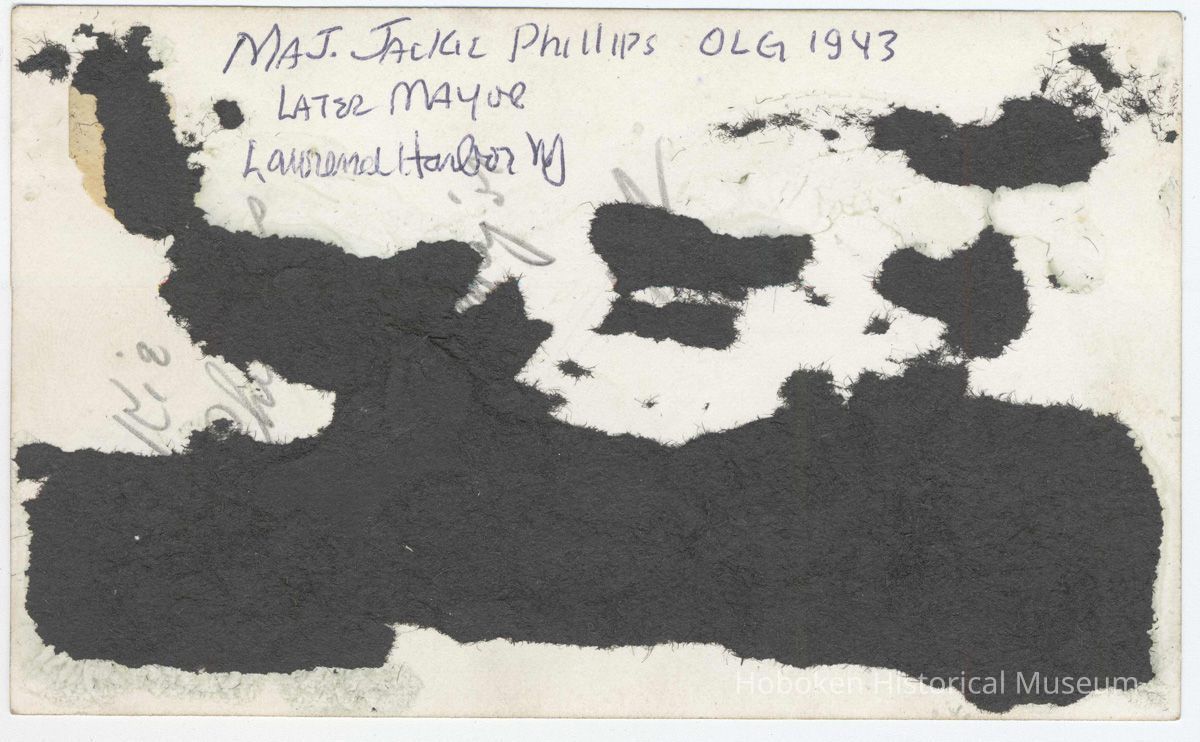 MAJ. JACKIE Phillips OLG 1943
LATER MAYOR
Laurence Harbor NJ
Hoboken Historical Museum